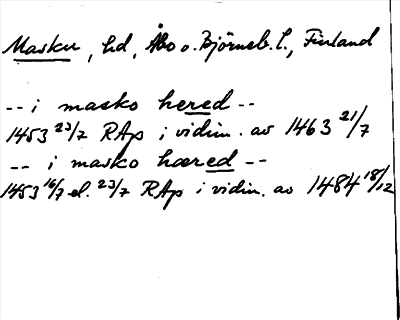 Masku, hd, Åbo o. Björneb. l., Finland
-- i masko hered --
1453 23/7 RAp i vidim. av 1463 21/7
-- i masko hæred --
1453 16/7 el. 23/7 RAp i vidim. av 1484 18/12